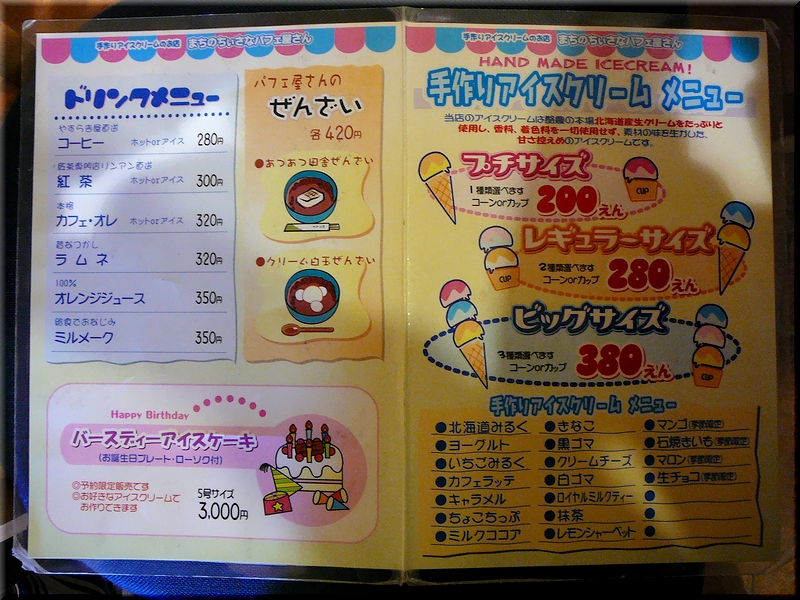 手作りアイスクリームのお店 まちのちいさなパフェ屋さん
ドリンクメニュー
やすらぎ屋直送
コーヒー ホットorアイス 280円
紅茶専門店リンアン直送
紅茶 ホットorアイス 300円
本場
カフェ・オレ ホットorアイス 320円
昔なつかし
ラムネ 320円
100%
オレンジジュース 350円
給食でおなじみ
ミルメーク 350円
パフェ屋さんの
ぜんざい
各420円
●あつあつ田舎ぜんざい
●クリーム白玉ぜんざい
Happy Birthday
バースディーアイスケーキ
(お誕生日プレート・ローソク付)
◎予約限定販売です
◎お好きなアイスクリームで
お作りできます
5号サイズ
3,000円
手作りアイスクリームのお店 まちのちいさなパフェ屋さん
HAND MADE ICECREAM!
手作りアイスクリーム メニュー
当店のアイスクリームは酪農の本場北海道産生クリームをたっぷりと
使用し、香料、着色料を一切使用せず、素材の味を生かした、
甘さ控えめのアイスクリームです。
プチサイズ
1種類選べます
コーンorカップ 200えん
CUP
レギュラーサイズ
2種類選べます
コーンorカップ 280えん
CUP
ビッグサイズ
3種類選べます
コーンorカップ 380えん
CUP
手作りアイスクリーム メニュー
●北海道みるく ●きなこ ●マンゴ(季節限定)
●ヨーグルト ●黒ゴマ ●石焼きいも(季節限定)
●いちごみるく ●クリームチーズ ●マロン(季節限定)
●カフェラッテ ●白ゴマ ●生チョコ(季節限定)
●キャラメル ●ロイヤルミルクティー ●
●ちょこちっぷ ●抹茶 ●
●ミルクココア ●レモンシャーベット ●